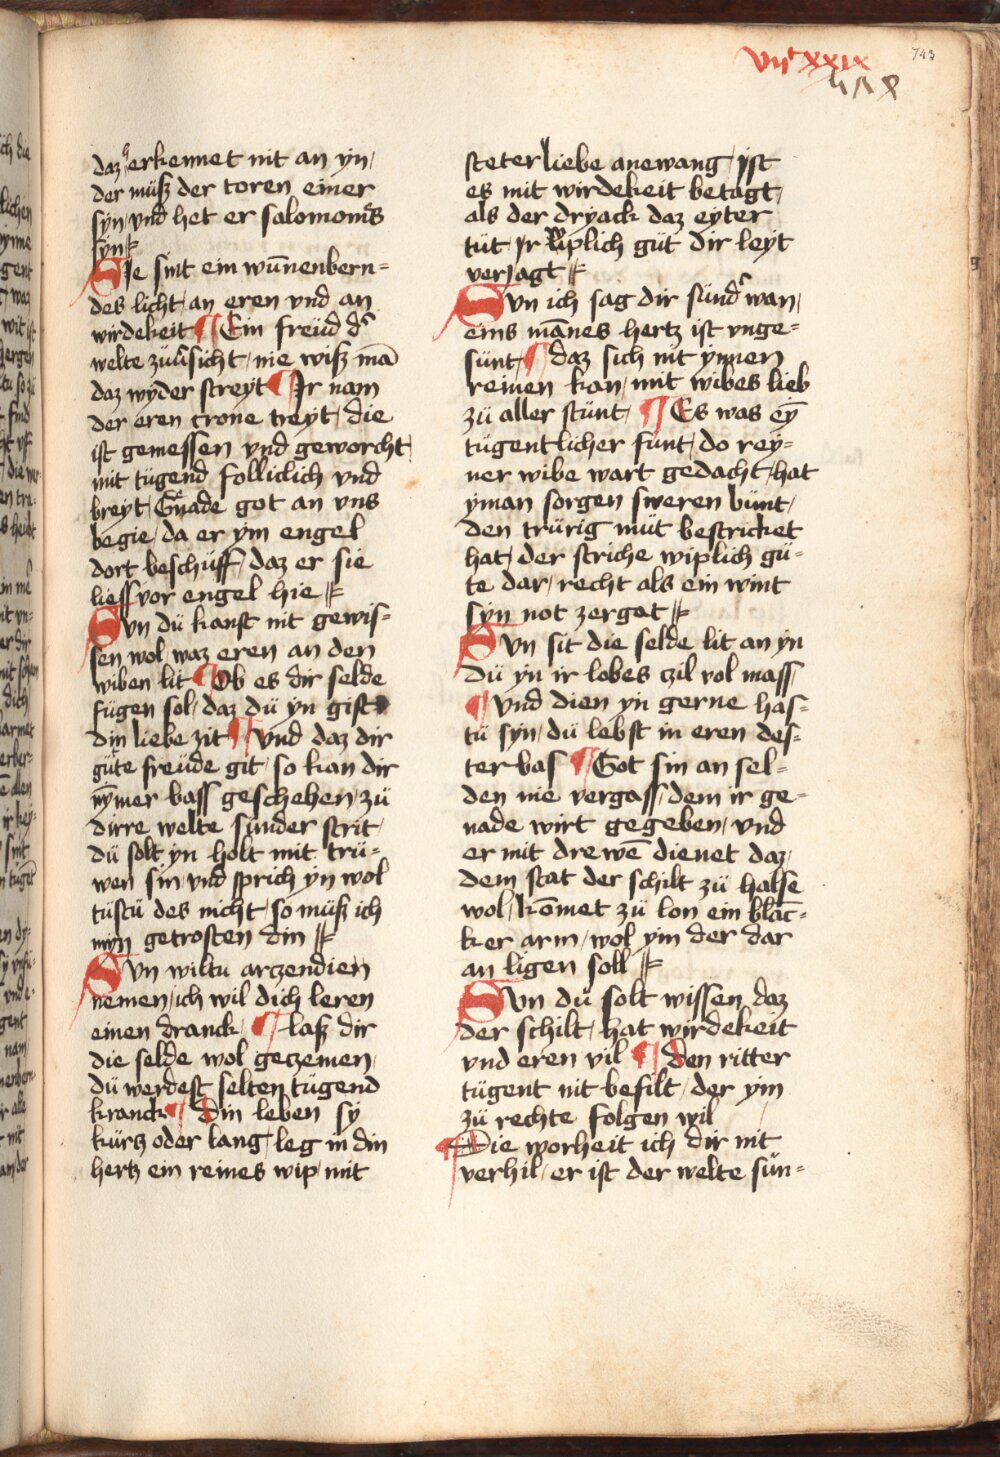 vijᶜ xxix
743
daz erkennet nit an yn /
der müß der toren einer
syn / vnd het er salomonis
syn
Sie sint ein wūnenbern=
des licht / an eren vnd an
wirdekeit ¶ Ein freüd d'
welte züu'sicht / nie wiß mā
daz wyder streyt ¶ Ir nam
der eren crone treyt / die
ist gemessen vnd geworcht
mit tügend follidich vnd
breyt / Gnade got an vns
begie / da er ym engel
dort beschüff / daz er sie
liess vor engel hie
Svn dü kanst nit gewis=
sen wol / waz eren an den
wiben lit ¶ Ob es dir selde
fügen sol / daz dü yn gist
din liebe zit ¶ vnd daz dir
güte freüde git / so kan dir
nȳmer bass geschehen / zü
dirre welte sünder strit /
dü solt yn holt mit trü=
wen sin / vnd sprich yn wol
tüstü des nicht / so müß ich
myn getrosten din
Svn wiltu arczendien
nemen / ich wil dich leren
einen dranck / ¶ laß dir
die selde wol geczemen /
dü werdest selten tügend
kranck ¶ Din leben sy
kürtz oder lang / leg in din
hertz ein reines wip / mit
steter liebe anewang / Ist
es mit wirdekeit betagt /
als der dryack daz eyter
tüt / Ir wiplich güt dir leyt
verjagt
Svn ich sag dir sünd' wan /
eins mānes hertz ist vnge=
sünt / ¶ daz sich nit ynnen
reinen kan / mit wibes lieb
zü aller stünt / ¶ Es was eȳ
tügentlicher funt / do rey=
ner wibe wart gedacht / hat
yman sorgen sweren bünt /
den trürig müt bestricket
hat / der striche wiplich gü=
te dar / recht als ein wint
syn not zerget
Svn sit die selde lit an yn
dü yn ir lobes czil vol mass /
¶ Vnd dien yn gerne has=
tü syn / dü lebst in eren des=
ter bas ¶ Got sin an sel=
den nie vergass / dem ir ge=
nade wirt gegeben / vnd
er mit drewē dienet daz /
dem stat der schilt zü halse
wol / kōmet zü lon ein blāc=
ker arm / wol ym der dar
an ligen soll
Svn dü solt wissen daz
der schilt / hat wirdekeit
vnd eren vil ¶ den ritter
tügent nit befilt / der ym
zü rechte folgen wil
¶ Die worheit ich dir nit
verhil / er ist der welte sün=